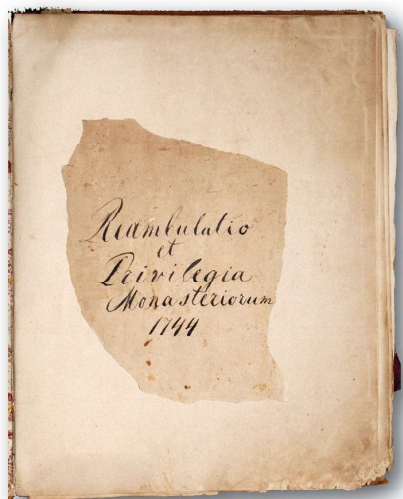 Reambulatio
et
Privilegia
Monasteriorum
1744